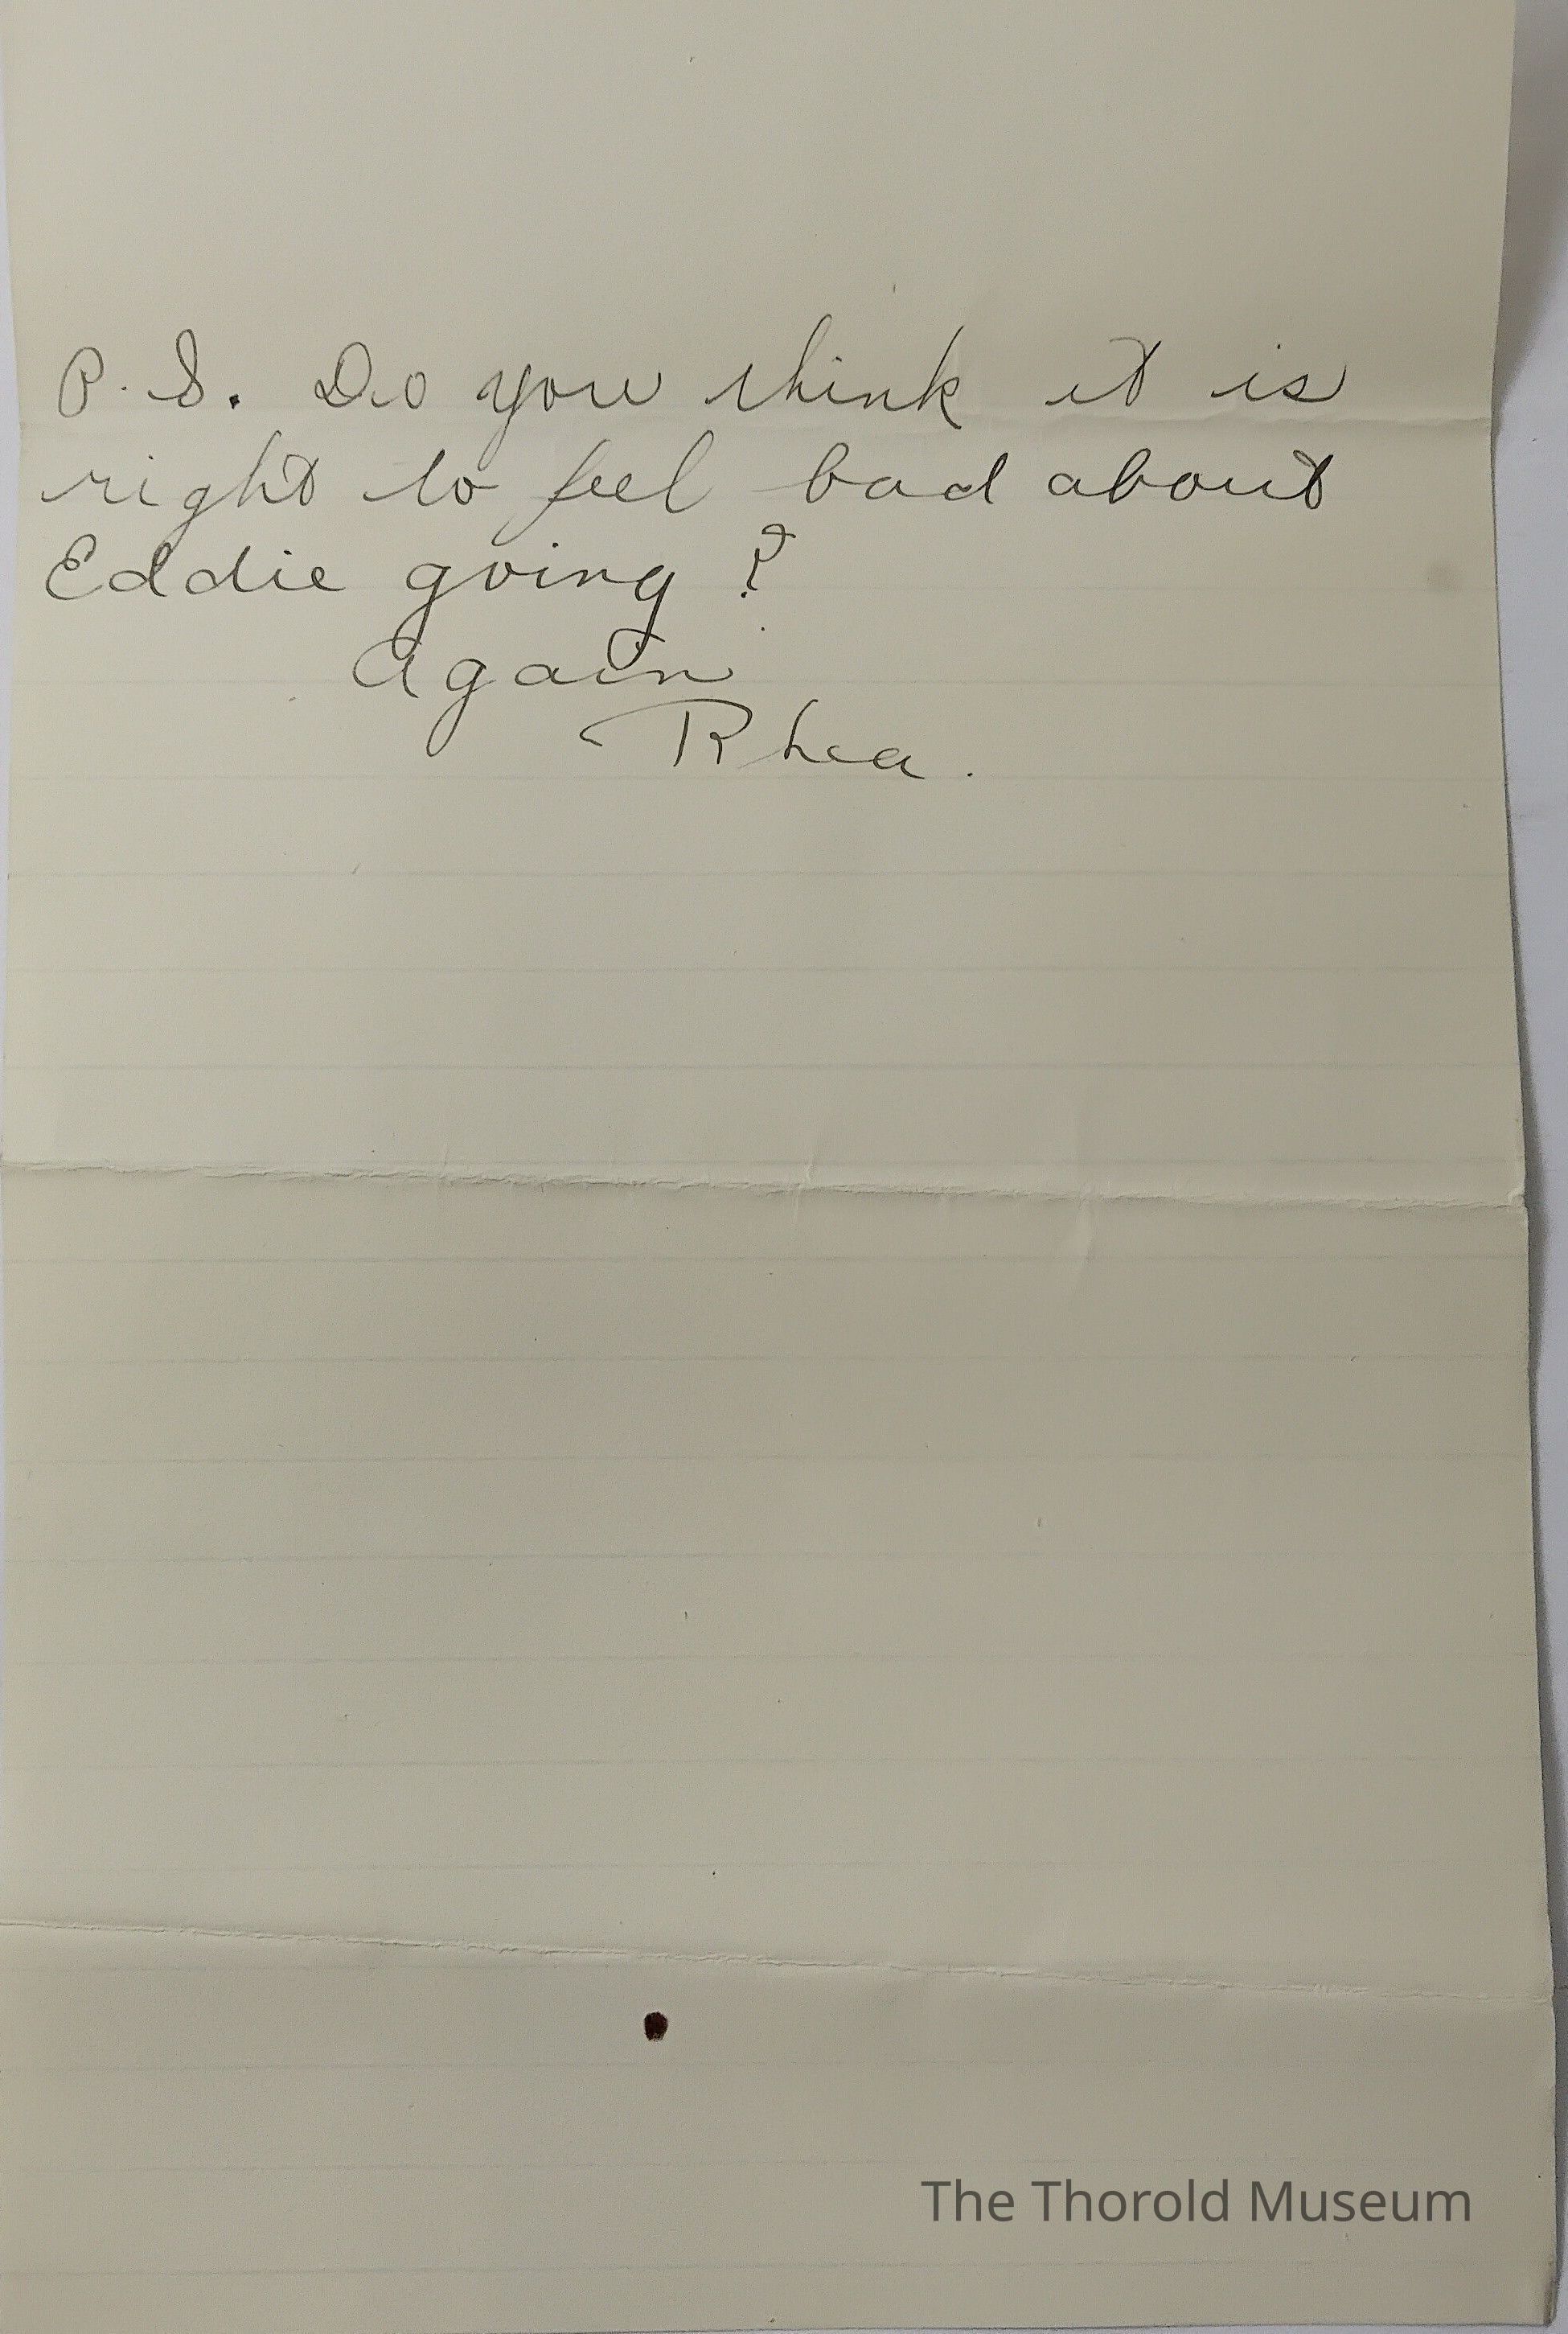 P.S. Do you think it is
right to feel bad about
Eddie going?
Again
Rhea.
The Thorold Museum